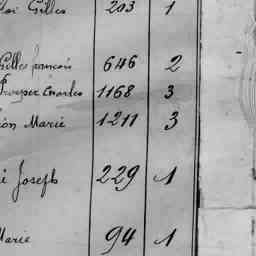 Gilles 203 1
Gilles françois 646 2
Prosper Charles 1168 3
Marie 1211 3
Joseph 229 1
Marie 94 1